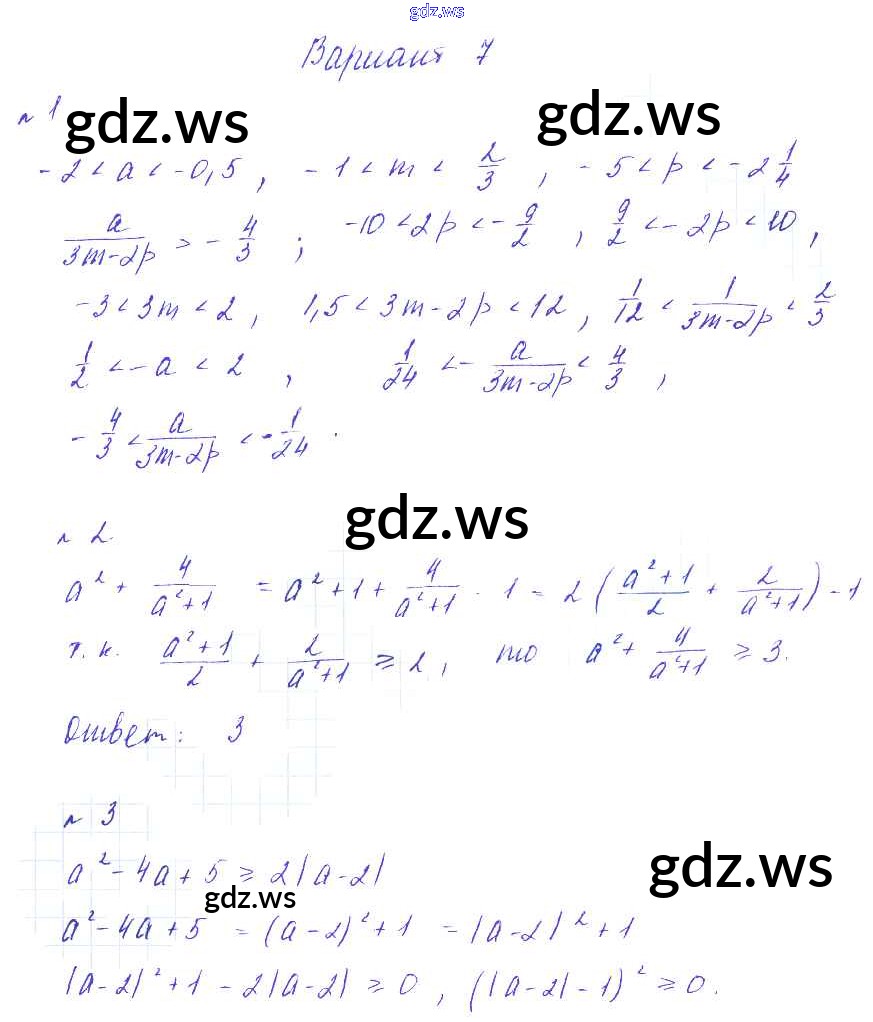 gdz.ws
Вариант 7
n 1
gdz.ws gdz.ws
-2 < a < -0,5 , -1 < m < 2/3 , -5 < p < -2 1/4
a/(3m-2p) > -4/3 ; -10 < 2p < -9/2 , 9/2 < -2p < 10 ,
-3 < 3m < 2 , 1,5 < 3m-2p < 12 , 1/12 < 1/(3m-2p) < 2/3
1/2 < -a < 2 , 1/24 < -a/(3m-2p) < 4/3 ,
-4/3 < a/(3m-2p) < -1/24 .
gdz.ws
n 2.
a² + 4/(a²+1) = a² + 1 + 4/(a²+1) - 1 = 2((a²+1)/2 + 2/(a²+1)) - 1
т. к. (a²+1)/2 + 2/(a²+1) ≥ 2 , то a² + 4/(a²+1) ≥ 3.
Ответ: 3
n 3
a² - 4a + 5 ≥ 2|a-2|
gdz.ws
gdz.ws
a² - 4a + 5 = (a-2)² + 1 = |a-2|² + 1
|a-2|² + 1 - 2|a-2| ≥ 0 , (|a-2| - 1)² ≥ 0.